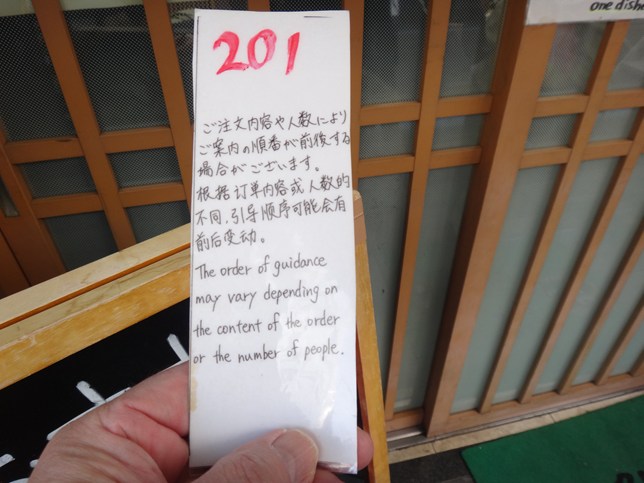 one dishe
201
ご注文内容や人数により
ご案内の順番が前後する
場合がございます。
根据订单内容或人数的
不同,引导顺序可能会有
前后变动。
The order of guidance
may vary depending on
the content of the order
or the number of people.